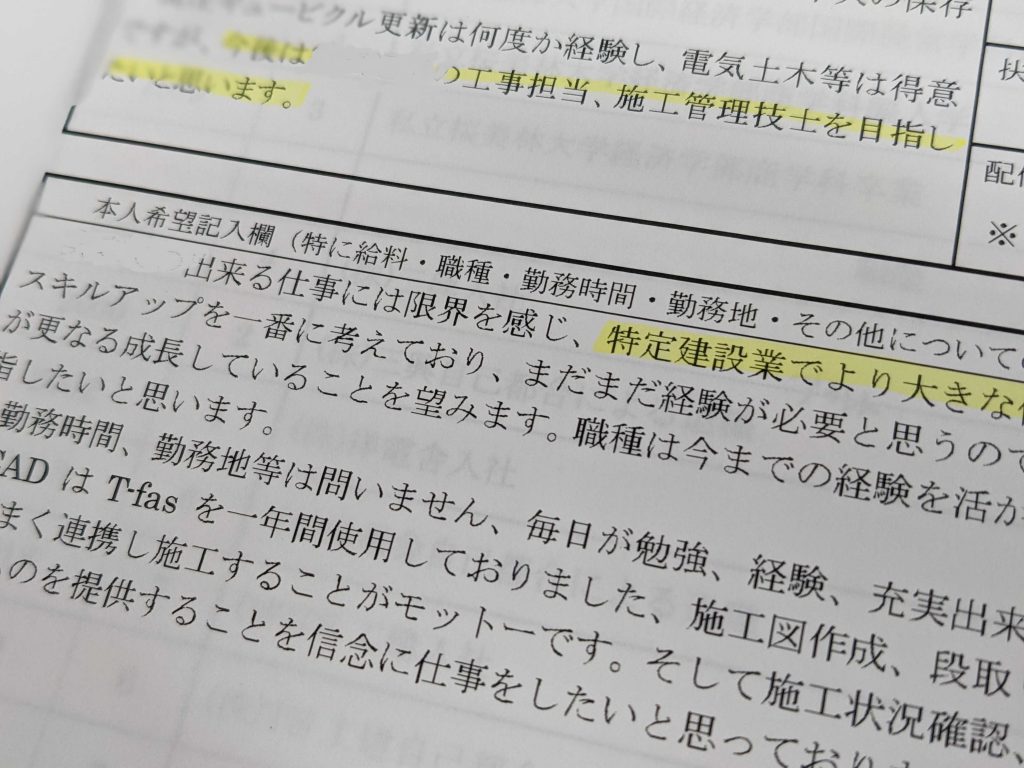 の保存
キュービクル更新は何度か経験し、電気土木等は得意
ですが、今後は
の工事担当、施工管理技士を目指し
たいと思います。
扶
配偶
※
本人希望記入欄（特に給料・職種・勤務時間・勤務地・その他について
出来る仕事には限界を感じ、特定建設業でより大きな
スキルアップを一番に考えており、まだまだ経験が必要と思うので
が更なる成長していることを望みます。職種は今までの経験を活か
指したいと思います。
勤務時間、勤務地等は問いません、毎日が勉強、経験、充実出来
CAD は T-fas を一年間使用しておりました、施工図作成、段取
まく連携し施工することがモットーです。そして施工状況確認、
のを提供することを信念に仕事をしたいと思っており
3
私立桜美林大学経済学部商学科卒業